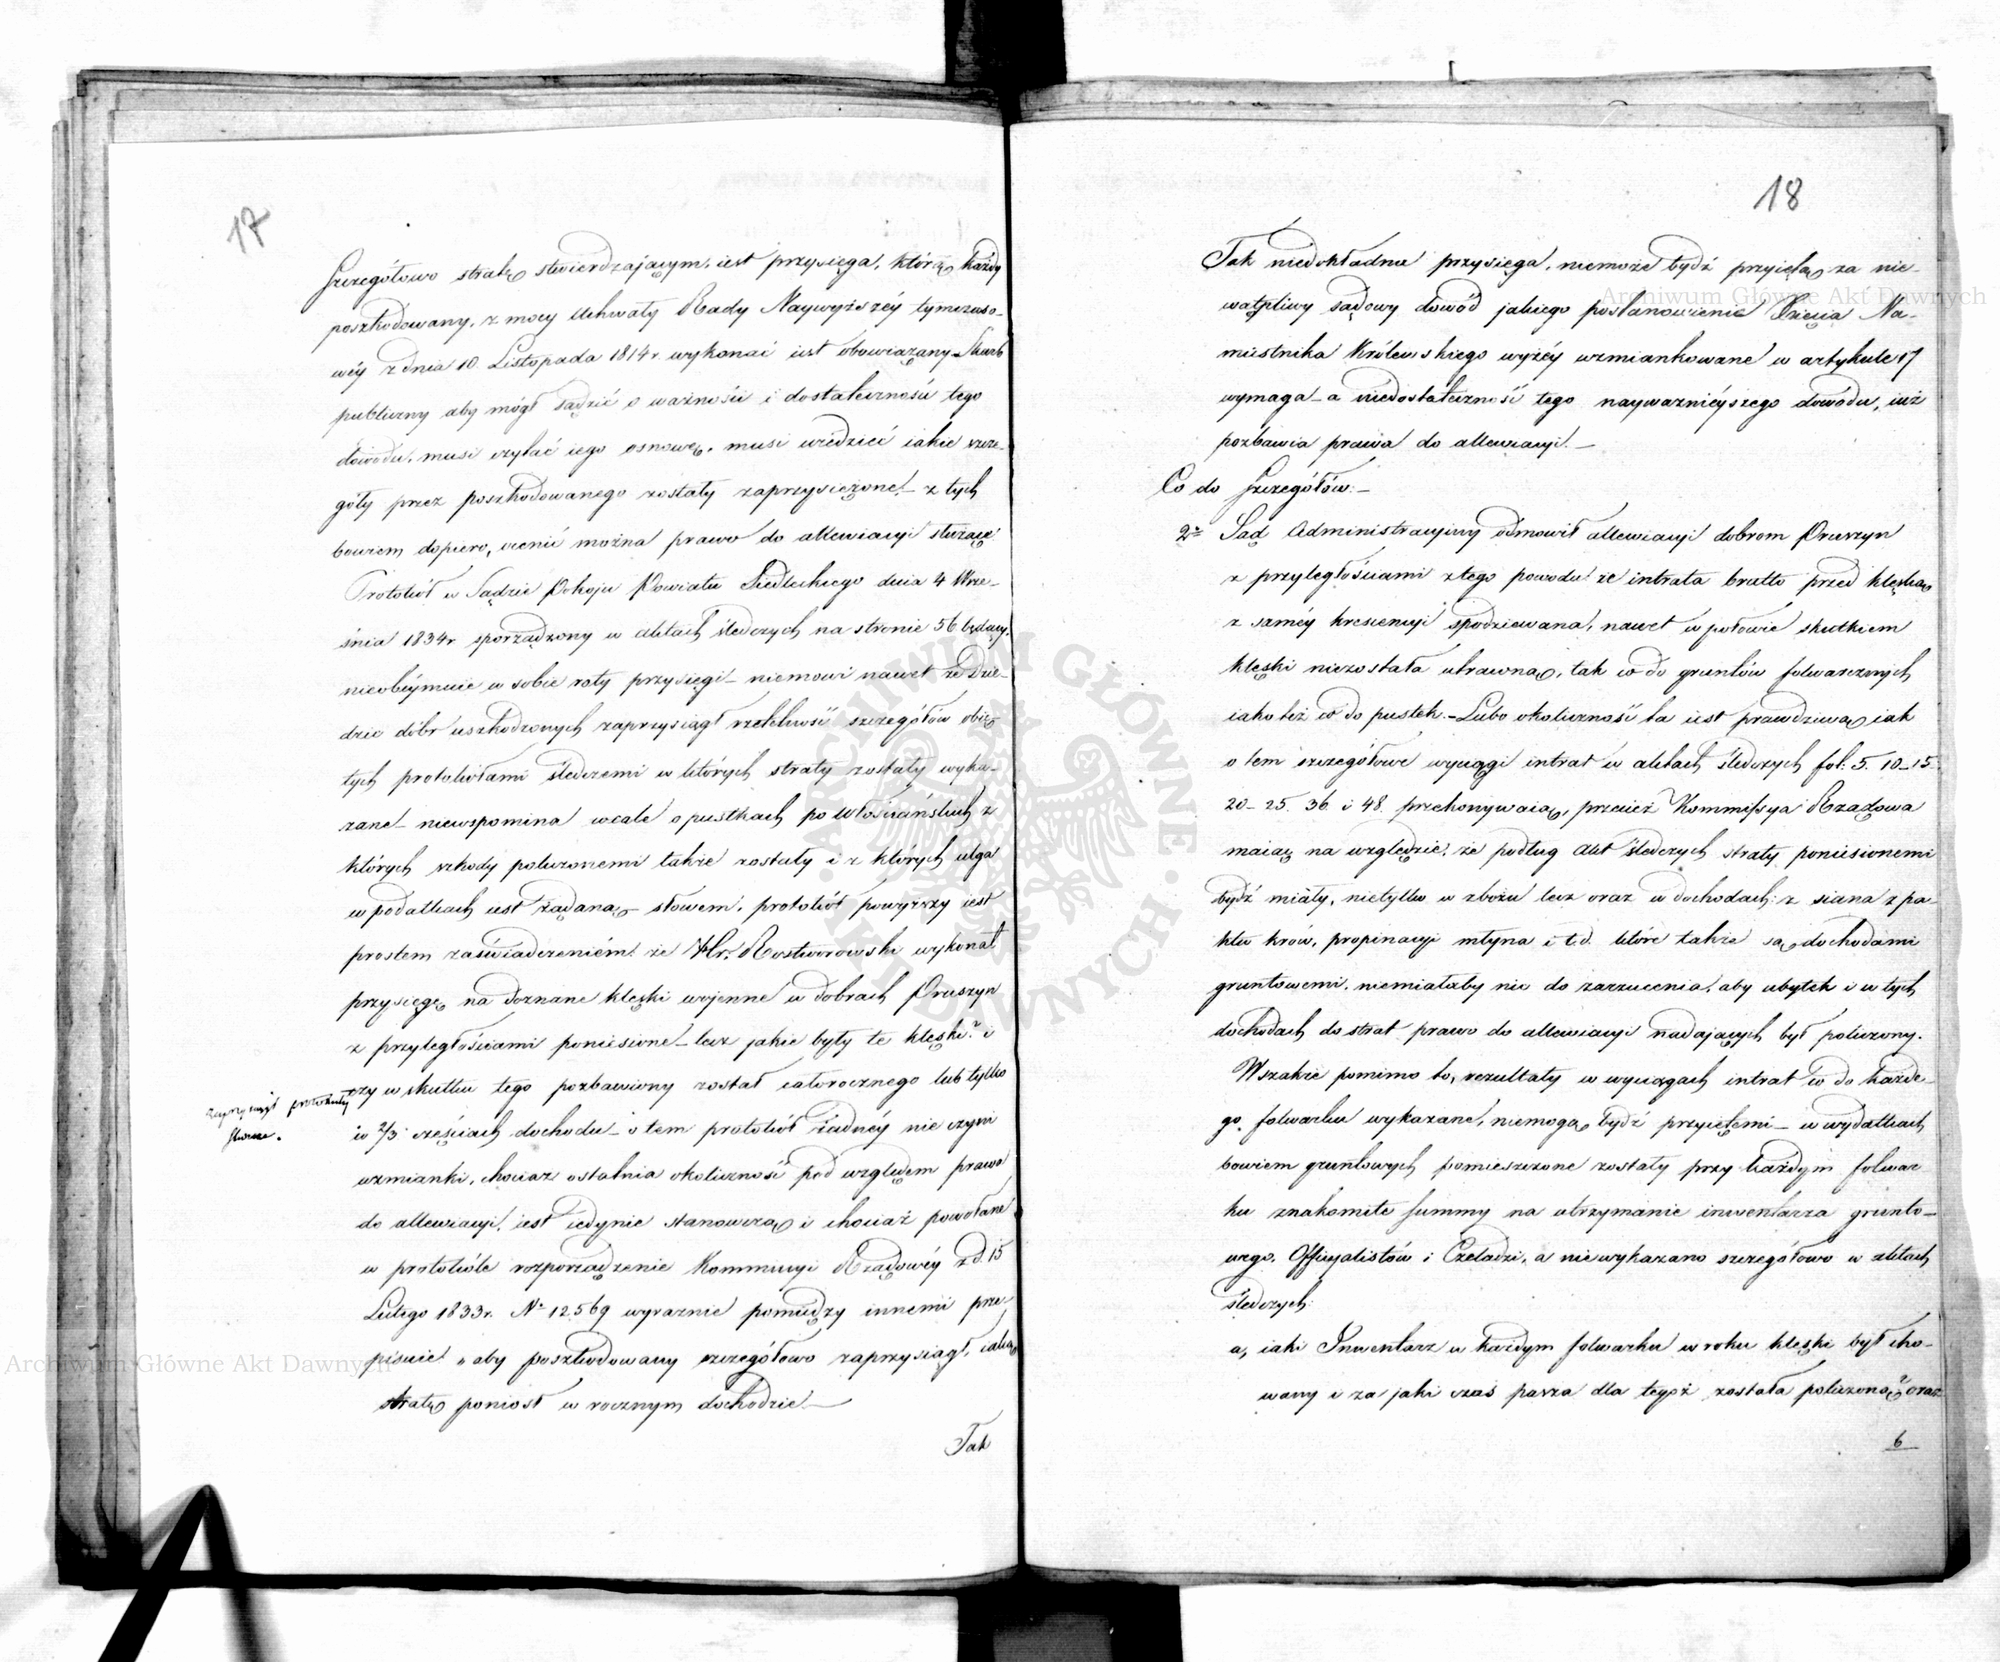 17
Szczegółowo stratę stwierdzającym, iest przysięga, którą każdy
poszkodowany, z mocy Uchwały Rady Naywyższéy tymczaso-
wéy z dnia 10 Listopada 1814 r. wykonać iest obowiązany - Skarb
publiczny aby mógł sądzić o ważności i dostateczności tego
dowodu, musi czytać iego osnowę, musi wiedzieć iakie szcze-
góły przez poszkodowanego zostały zaprzysiężone! - z tych
bowiem dopiero, cenić można prawo do allewiacyi służące
Protokół w Sądzie Pokoju Powiatu Siedleckiego dnia 4 Wrze-
śnia 1834 r sporządzony w aktach śledczych na stronie 56 będący,
nieobéymuie w sobie roty przysięgi - niemowi nawet że Dzie-
dzic dóbr uszkodzonych zaprzysiągł rzetelność szczegółów obię
tych protokółami śledczemi w których straty zostały wyka-
zane - niewspomina wcale o pustkach po Włościańskich z
których szkody policzonemi także zostały i z których ulga
w podatkach iest żądaną - słowem, protokół powyższy iest
prostem zaświadczeniém! że Hr. Rostworowski wykonał
przysięgę na doznane klęski wojenne w dobrach Pruszyn
z przyległościami poniesione - lecz jakie były te klęski? i
czy w skutku tego pozbawiony został całorocznego lub tylko
zaprzysiągł protokuły
śledcze.
w 2/3 częściach dochodu - o tem protokół żadnéy nie czyni
wzmianki, chociaż ostatnia okoliczność pod względem prawa
do allewiacyi, iest iedynie stanowczą i chociaż powołane
w protokóle rozporządzenie Kommissyi Rządowéy z d. 15
Lutego 1833 r. No 12569 wyraznie pomiędzy innemi prze-
pisuie! „aby poszkodowany szczegółowo zaprzysiągł, iaką
stratę poniosł w rocznym dochodzie! -
Tak
18
Tak niedokładna przysięga, niemoże bydź przyiętą za nie-
wątpliwy sądowy dowód jakiego postanowienie Xięcia Na-
miestnika Królewskiego wyżéy wzmiankowane w artykule 17
wymaga - a niedostateczność tego nayważnieyszego dowodu, iuż
pozbawia prawa do allewiacyi! -
Co do Szczegółów: -
2o Sąd Administracyiny odmówił allewiacyi dobrom Pruszyn
z przyległościami z tego powodu! że intrata brutto przed klęską
z saméy krescencyi spodziewana, nawet w połowie skutkiem
klęski niezostała utraconą, tak co do gruntów folwarcznych
iako też co do pustek. - Lubo okoliczność ta iest prawdziwą iak
o tem szczegółowe wyciągi intrat w aktach śledczych fol: 5. 10 - 15.
20 - 25. 36. i 48. przekonywaią, przecież Kommissya Rządowa
maiąc na względzie, że podług akt śledczych straty poniesionemi
bydź miały, nietylko w zbożu lecz oraz w dochodach: z siana z pa-
ktu krów, propinacyi młyna i t.d. które także są dochodami
gruntowemi, niemiałaby nic do zarzucenia, aby ubytek i w tych
dochodach do strat prawo do allewiacyi nadających był policzony.
Wszakże pomimo to, rezultaty w wyciągach intrat co do każde-
go folwarku wykazane, niemogą bydź przyiętemi - w wydatkach
bowiem gruntowych pomieszczone zostały przy każdym folwar
ku znakomite summy na utrzymanie inwentarza grunto-
wego, Officyalistów i Czeladzi, a niewykazano szczegółowo w aktach
śledczych:
a, iaki Inwentarz w każdym folwarku w roku klęski był cho-
wany i za jaki czas pasza dla tegoż została policzoną? oraz
6